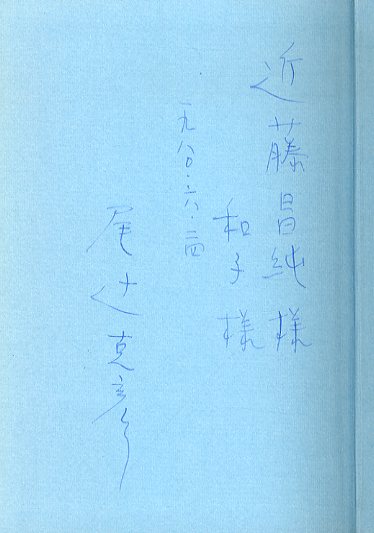 近藤昌純様
和子様
一九八〇・六・二四
尾辻克彦